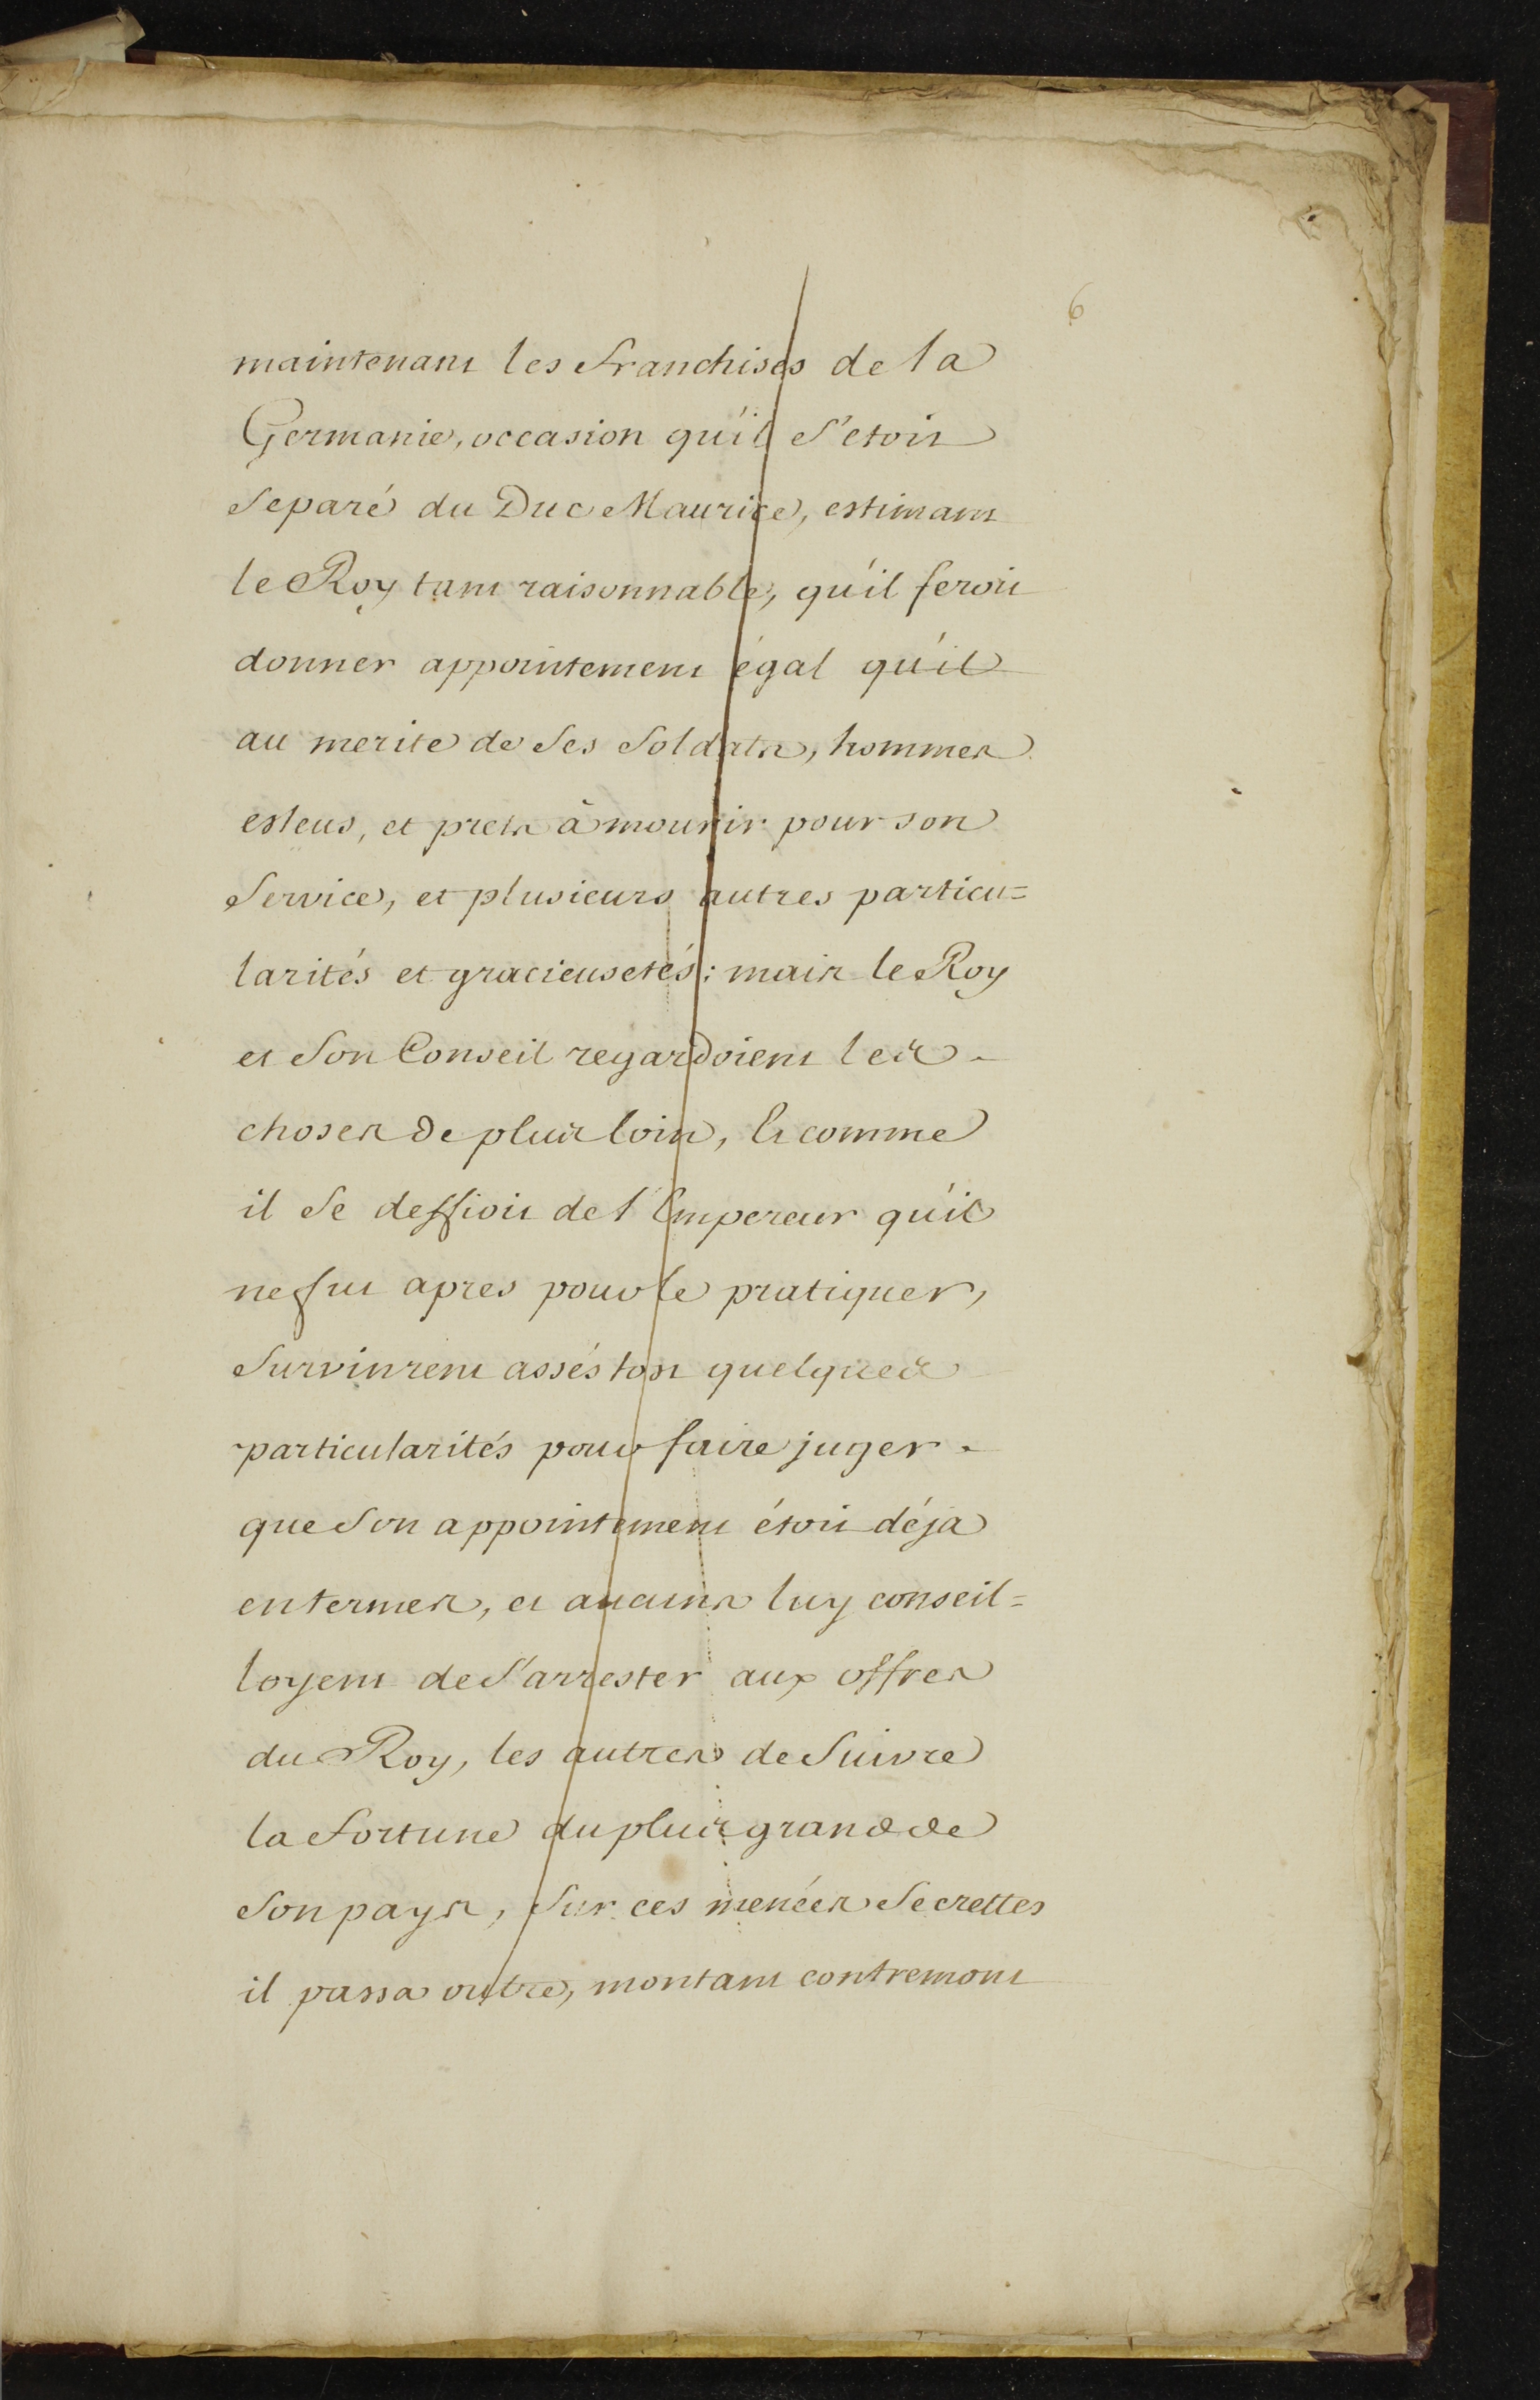 6
maintenant les franchises de la
Germanie, occasion qu'il s'etoit
separé du Duc Maurice, estimant
le Roy tant raisonnable, qu'il feroit
donner appointement égal qu'il
au merite de ses soldats, hommes
esleus, et prets à mourir pour son
service, et plusieurs autres particu=
larités et gracieusetés: mais le Roy
et son Conseil regardoient les
choses de plus loin, Et comme
il se deffioit de l'Empereur qu'il
ne fut apres pour le pratiquer,
survinrent assés tost quelques
particularités pour faire juger
que son appointement étoit déja
en termes, et aucuns luy conseil=
loyent de s'arrester aux offres
du Roy, les autres de suivre
la fortune du plus grand de
son pays, sur ces menées secrettes
il passa outre, montant contremont